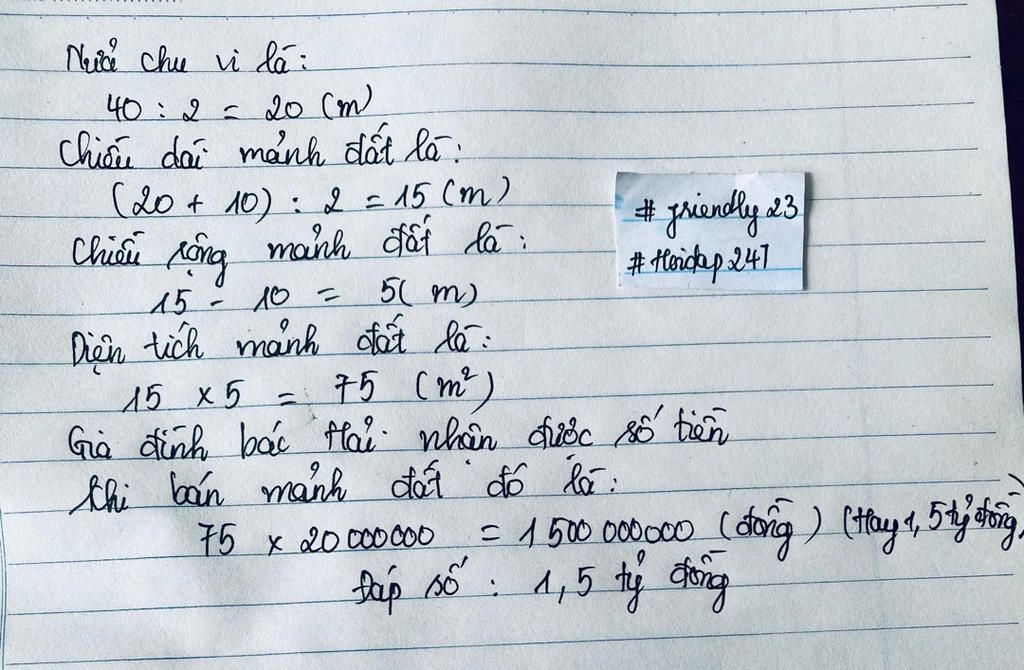 Nửa chu vi là:
40 : 2 = 20 (m)
Chiều dài mảnh đất là:
(20 + 10) : 2 = 15 (m)
# friendly 23
Chiều rộng mảnh đất là:
# Hoidap 247
15 - 10 = 5 (m)
Diện tích mảnh đất là:
15 x 5 = 75 (m²)
Gia đình bác Hải nhận được số tiền
khi bán mảnh đất đó là:
75 x 20 000000 = 1 500 000000 (đồng) (Hay 1,5 tỷ đồng)
Đáp số : 1,5 tỷ đồng